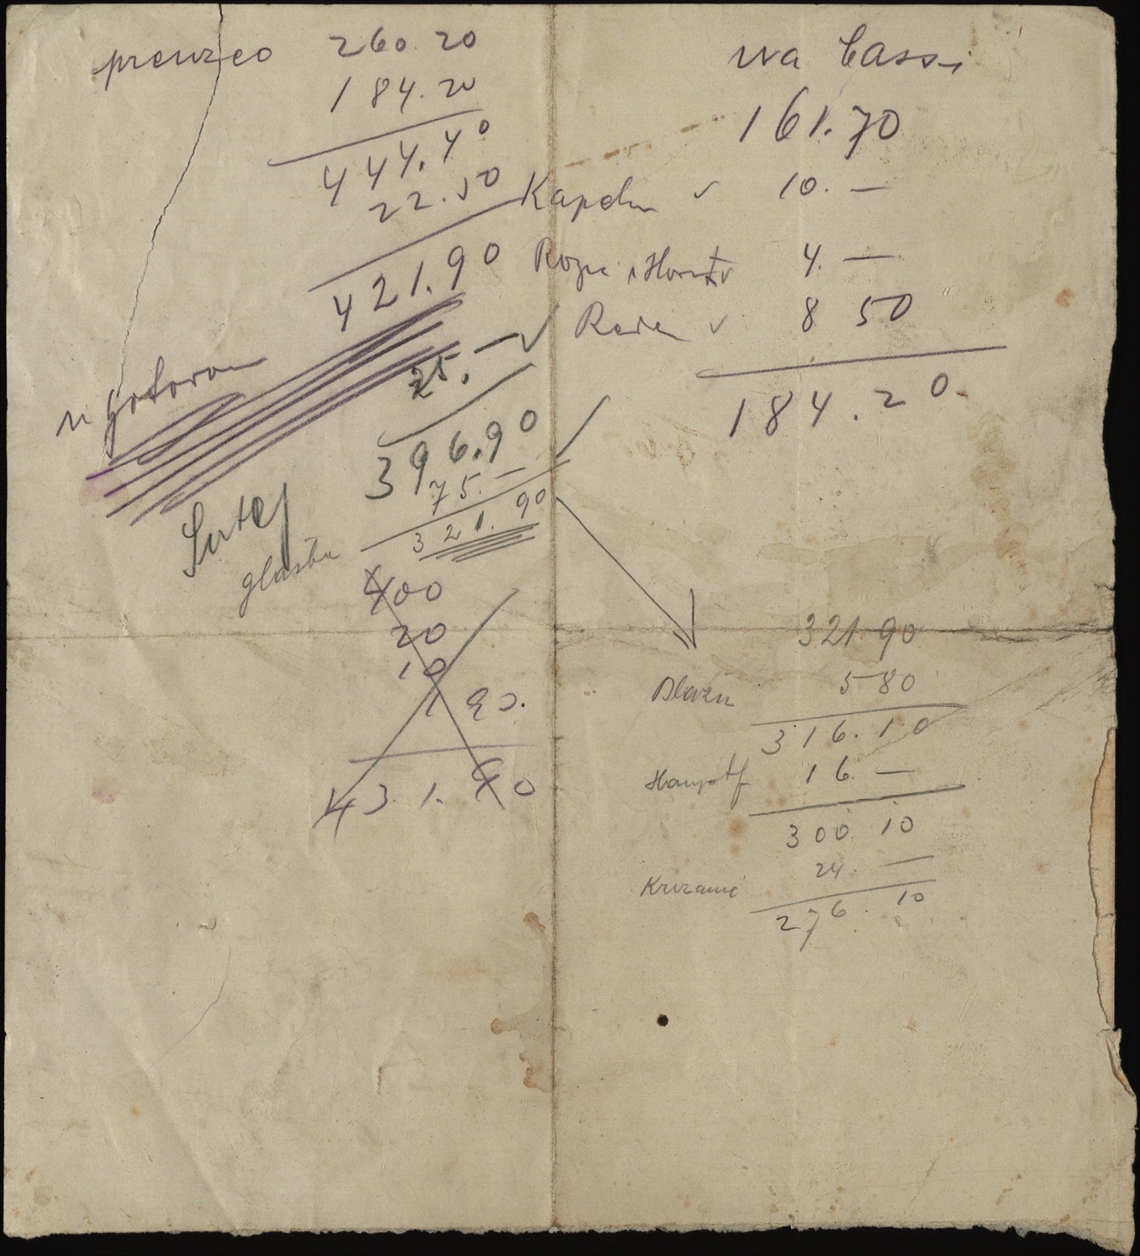 preuzeo 260.20
184.20
444.40
22.50
421.90
u gotovom
25.—
396.90
75.—
321.90
glasba
400
20
10
1 90.
431.90
na Cassi
161.70
10.—
4.—
8 50
184.20
321.90
5 80
316.10
16.—
300 10
24.—
276.10